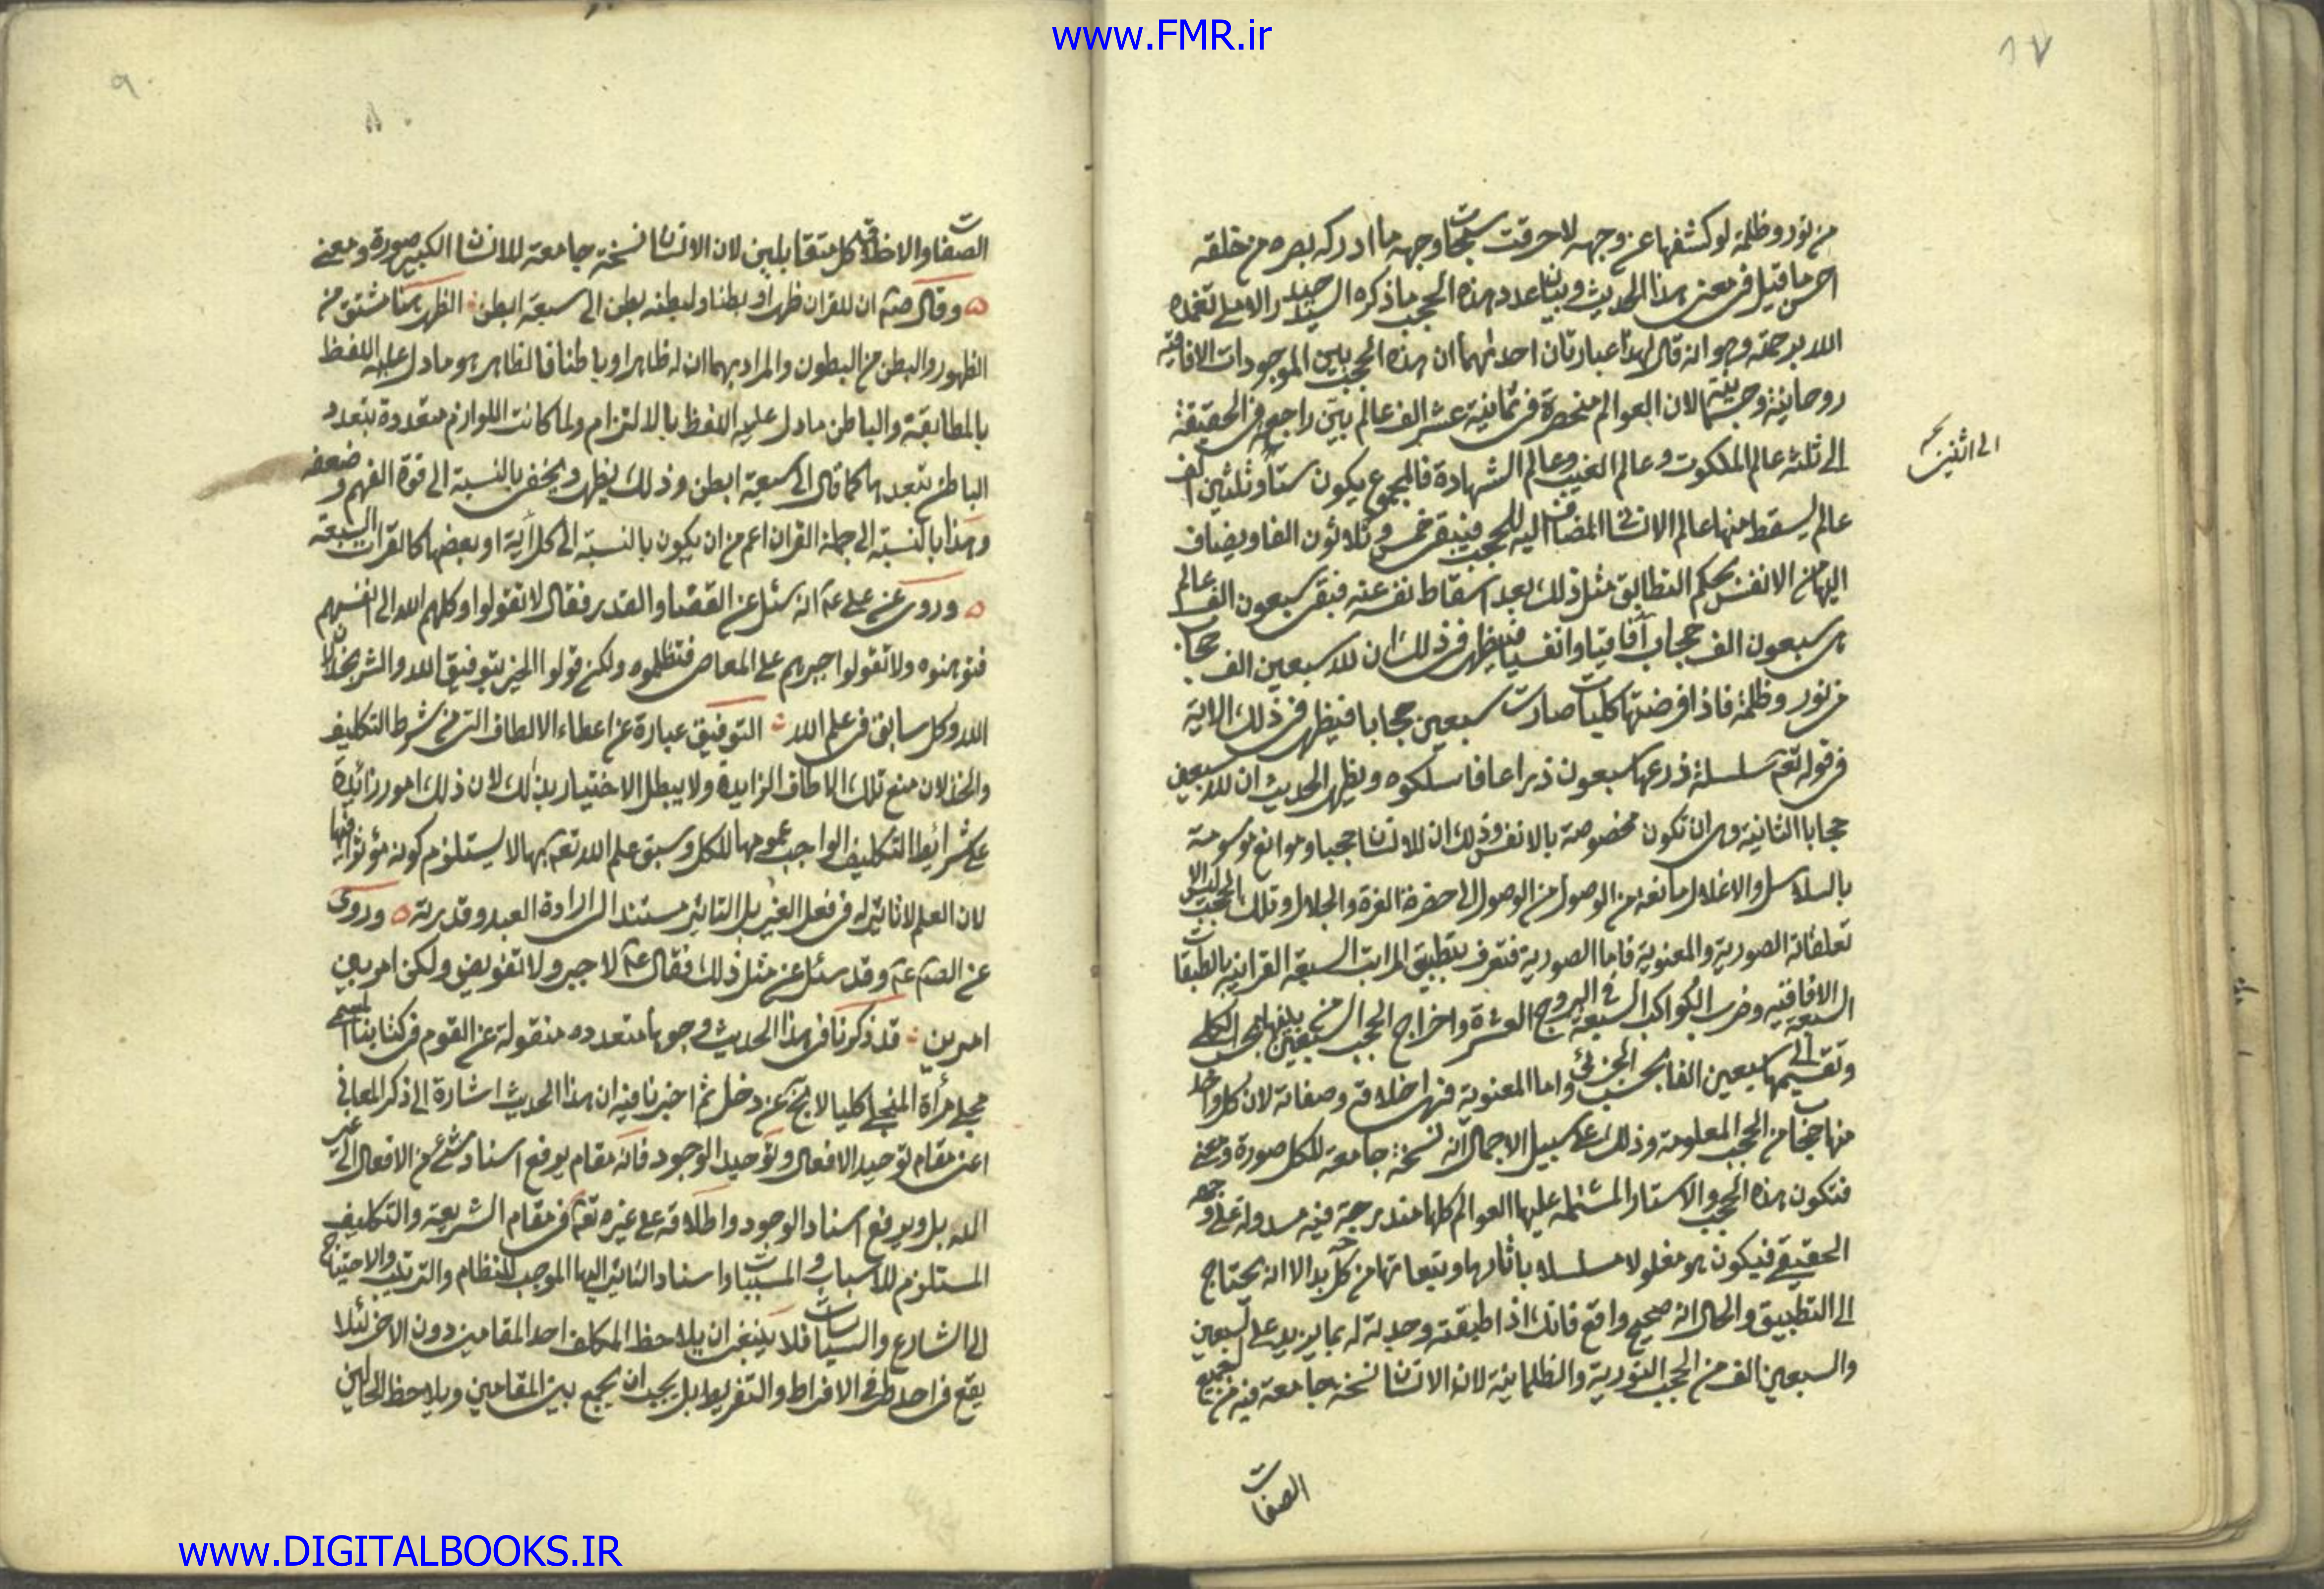 www.FMR.ir
١٧
من نور وظلمة لو كشفها عن وجهه لاحرقت سبحات وجهه ما ادركه بصره من خلقه
احسن ما قيل فى معنى هذا الحديث وبيان اعداد هذه الحجب ما ذكره السيد حيدر الاملى تغمده
الله برحمته وهو انه قال لهذا عبارتان احدىهما ان هذه الحجب بين الموجودات الافاقية
روحانية وجسمانية لان العوالم منحصرة فى ثمانية عشر الف عالم بين راجعه فى الحقيقة
الى ثلثه عالم الملكوت وعالم الغيب وعالم الشهادة فالمجموع يكون ستا وثلثين الف
الى اثنين
عالم يسقط منها عالم الانسان المضاف اليه للحجب فيبقى خمس وثلاثون الفا ويضاف
اليها من الانفس بحكم التطابق مثل ذلك بعد اسقاط نفسه عنه فبقى سبعون الف عالم
هى سبعون الف حجاب آفاقيا وانفسيا فيظهر فى ذلك ان لله سبعين الف حجاب
من نور وظلمة فاذا فرضتها كليات صارت سبعين حجابا فيظهر فى ذلك الاية
فى قوله تعه سلسلة ذرعها سبعون ذراعا فاسلكوه ويظهر الحديث ان لله سبعين
حجابا الثانية وهى ان تكون مخصوصة بالانفس وذلك ان للانسان حجبا وموانع موسومة
بالسلاسل والاغلال مانعة من الوصول من الوصول الى حضرة العزة والجلال وتلك الحجب ليس الا
تعلقاته الصورية والمعنوية فاما الصورية فتعرف بتطبيق المراتب السبعة القرانية بالطبقات
السبعة الافاقيه وضرب الكواكب السبعة فى البروج العشرة واخراج الحجب السبعين بينها بحسب الكلى
وتقسيمها الى سبعين الفا بحسب الجزئى واما المعنوية فهى اخلاقه وصفاته لان كل واحد
منها حجاب من الحجب المعلومة وذلك على سبيل الاجمال انه نسخة جامعة للكل صورة ومعنى
فتكون هذه الحجب والاستار المشتملة عليها العوالم كلها مندرجة فيه مسدولة على وجهه
الحقيقى فيكون هو مغلولا مسلسلا باثارها وتبعاتها من كل جهة بدا الا انه يحتاج
الى التطبيق والحال انه صحيح واقع فانك اذا طبقته وجدته له بما يزيد على السبعين
والسبعين الف من الحجب النورية والظلمانية لان الانسان نسخة جامعة فيه من جميع
الصفات
٩
٨
الصفات والاخلاق كل متقابلين لان الانسان نسخة جامعة للانسان الكبير صورة ومعنى
ه وقال صم ان للقران ظهرا وبطنا ولبطنه بطن الى سبعة ابطن الظهر هنا مشتق من
الظهور والبطن من البطون والمراد بهما ان له ظاهرا وباطنا فالظاهر هو ما دل عليه اللفظ
بالمطابقة والباطن ما دل عليه اللفظ بالالتزام ولما كانت اللوازم متعددة بتعدد
الباطن بتعددها كما قال الى سبعة ابطن وذلك يظهر ويخفى بالنسبة الى قوة الفهم وضعفه
وهذا بالنسبة الى جملة القران اعم من ان يكون بالنسبة الى كل آية او بعضها كالقرات السبعة
ه وروى عن على عم انه سئل عن القضا والقدر فقال لا تقولوا وكلهم الله الى انفسهم
فتوهنوه ولا تقولوا جبرهم على المعاصى فتظلموه ولكن قولوا الخير بتوفيق الله والشر بخذلان
الله وكل سابق فى علم الله التوفيق عبارة عن اعطاء الالطاف التى هى شرط التكليف
والخذلان منع تلك الالطاف الزايدة ولا يبطل الاختيار بذلك لان ذلك امور زائدة
على شرائط التكليف الواجب عمومها للكل وسبق علم الله تعه بها لا يستلزم كونه مؤثرا فيها
لان العلم لا تاثير له فى فعل الغير بل التاثير مستند الى ارادة العبد وقدرته ه وروى
عن الصم عم وقد سئل عن مثل ذلك فقال عم لا جبر ولا تفويض ولكن امر بين
امرين قد ذكرنا فى هذا الحديث وجوها متعدده منقولة عن القوم فى كتابنا المسمى
مجلى مرآة المنجى كليا لا يخ عن دخل ثم اخبرنا فيه ان هذا الحديث اشارة الى ذكر المعانى
اعنى مقام توحيد الافعال وتوحيد الوجود فانه مقام يرفع اسناد شئ من الافعال الى غير
الله بل ويرفع اسناد الوجود واطلاقه على غيره تعه فى مقام الشريعة والتكليف
المستلزم للاسباب والمسببات واسناد التاثير اليها الموجب للنظام والترتيب والاحتياج
الى الشارع والسياسات فلا ينبغى ان يلاحظ المكلف احد المقامين دون الاخر لئلا
يقع فى احد طرفى الافراط والتفريط بل يجب ان يجمع بين المقامين ويلاحظ الحالين
www.DIGITALBOOKS.IR